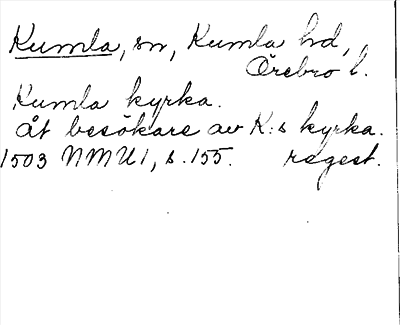 Kumla, sn, Kumla hd,
Örebro l.
Kumla kyrka.
åt besökare av K:s kyrka.
1503 NMU1, s. 155. regest.